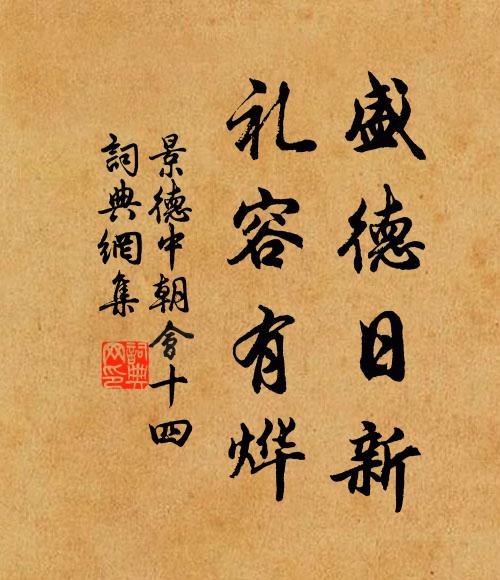 盛德日新
礼容有烨
景德中朝會十四
詞典網集
詞典網印